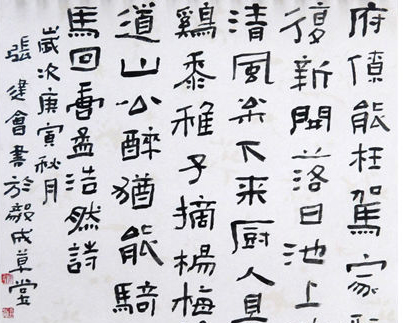 府僚能枉駕家
復新開落日池上
清風松下来厨人具
鷄黍稚子摘楊梅
道山公醉猶能騎
馬回孟浩然詩
歲次庚寅秋月
張健會書於毅成草堂